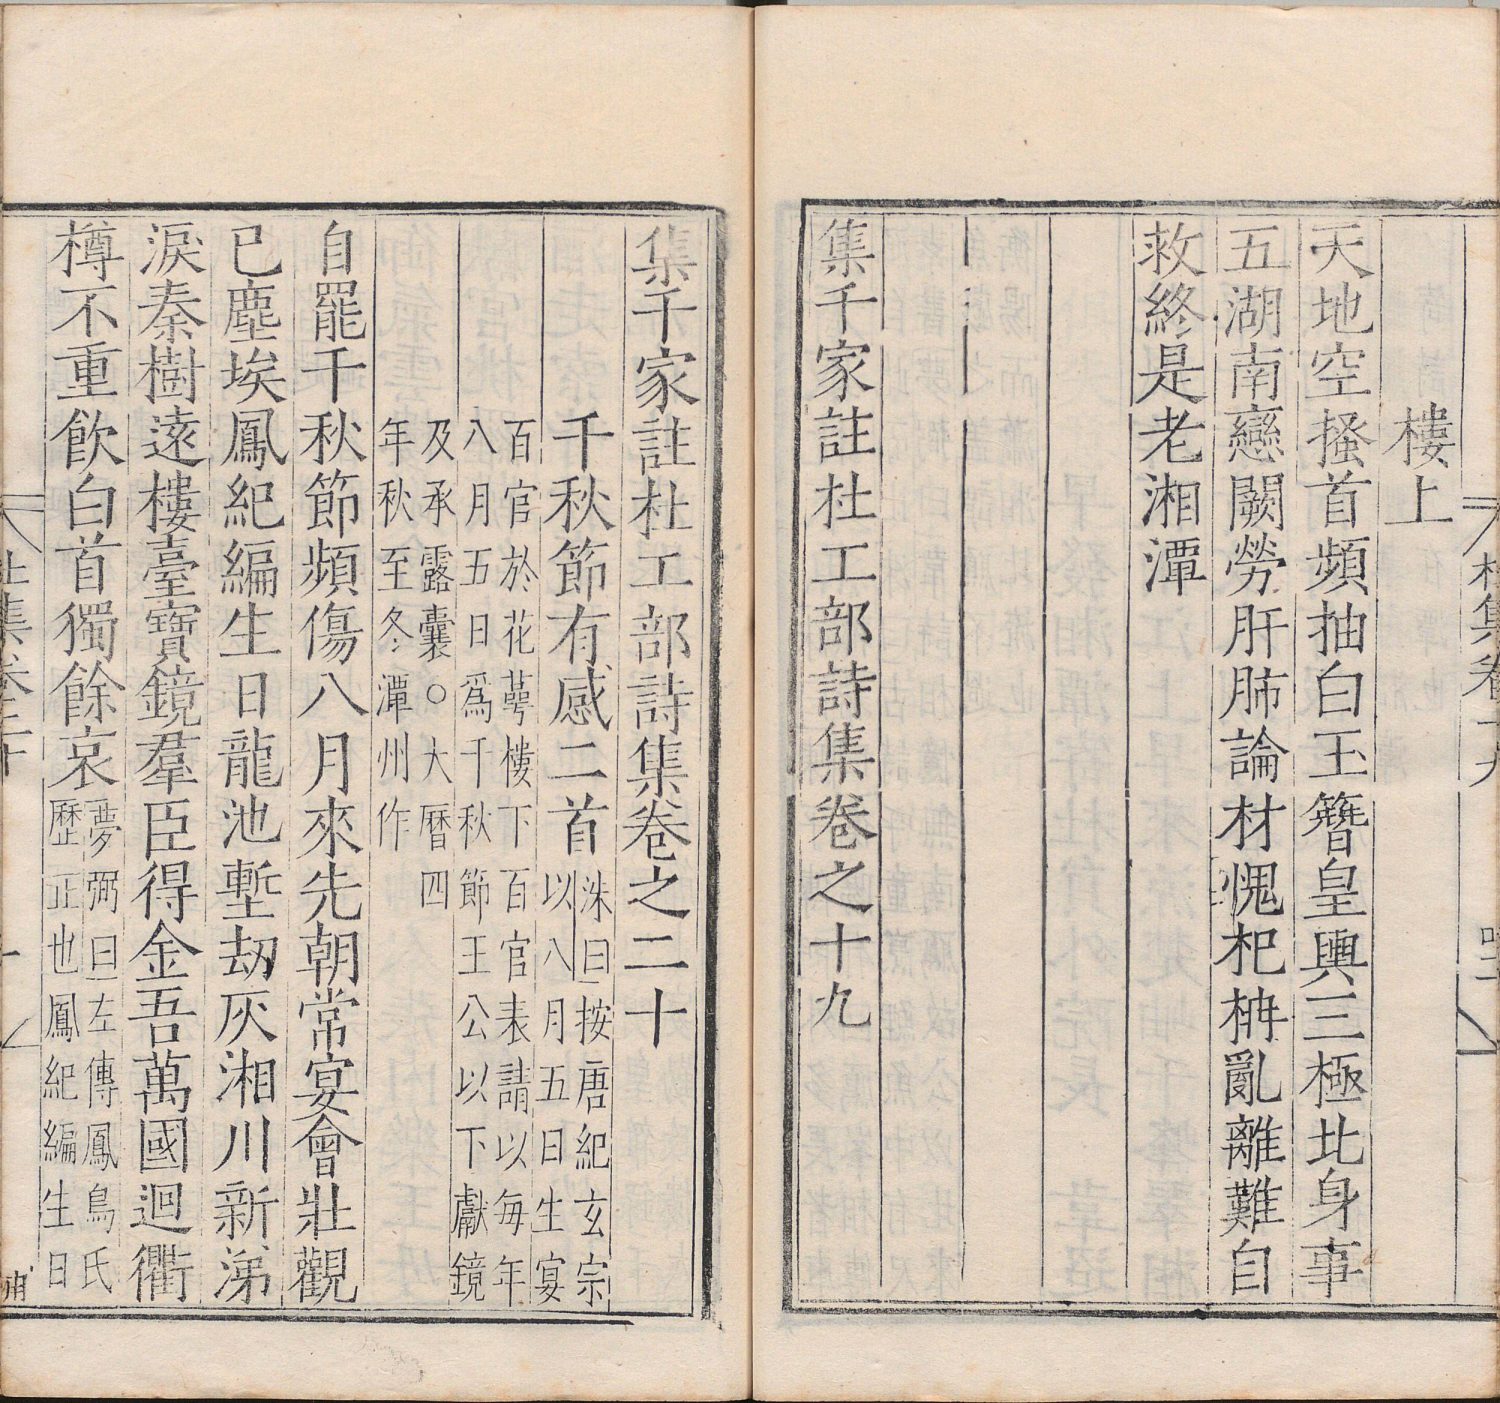 杜集卷十九
樓上
天地空搔首頻抽白玉簪皇輿三極北身事
五湖南戀闕勞肝肺論材愧杞柟亂離難自
救終是老湘潭
集千家註杜工部詩集卷之十九
集千家註杜工部詩集卷之二十
千秋節有感二首洙曰按唐紀玄宗
以八月五日生宴
百官於花萼樓下百官表請以每年
八月五日爲千秋節王公以下獻鏡
及承露囊○大曆四
年秋至冬潭州作
自罷千秋節頻傷八月來先朝常宴會壯觀
已塵埃鳳紀編生日龍池塹劫灰湘川新涕
淚秦樹遠樓臺寶鏡羣臣得金吾萬國迴衢
樽不重飲白首獨餘哀夢弼曰左傳鳳鳥氏
歷正也鳳紀編生日
杜集卷二十
一